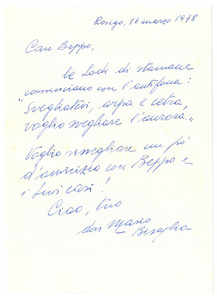 Rovigo, 16 marzo 1978
Caro Beppo,
le Lodi di stamane
cominciano con l'antifona:
"Svegliatevi, arpa e cetra,
voglio svegliare l'aurora."
Voglio risvegliare un po'
d'amicizia con Beppo e
i tuoi cari!
Ciao, tuo
don Mario
Bisaglia